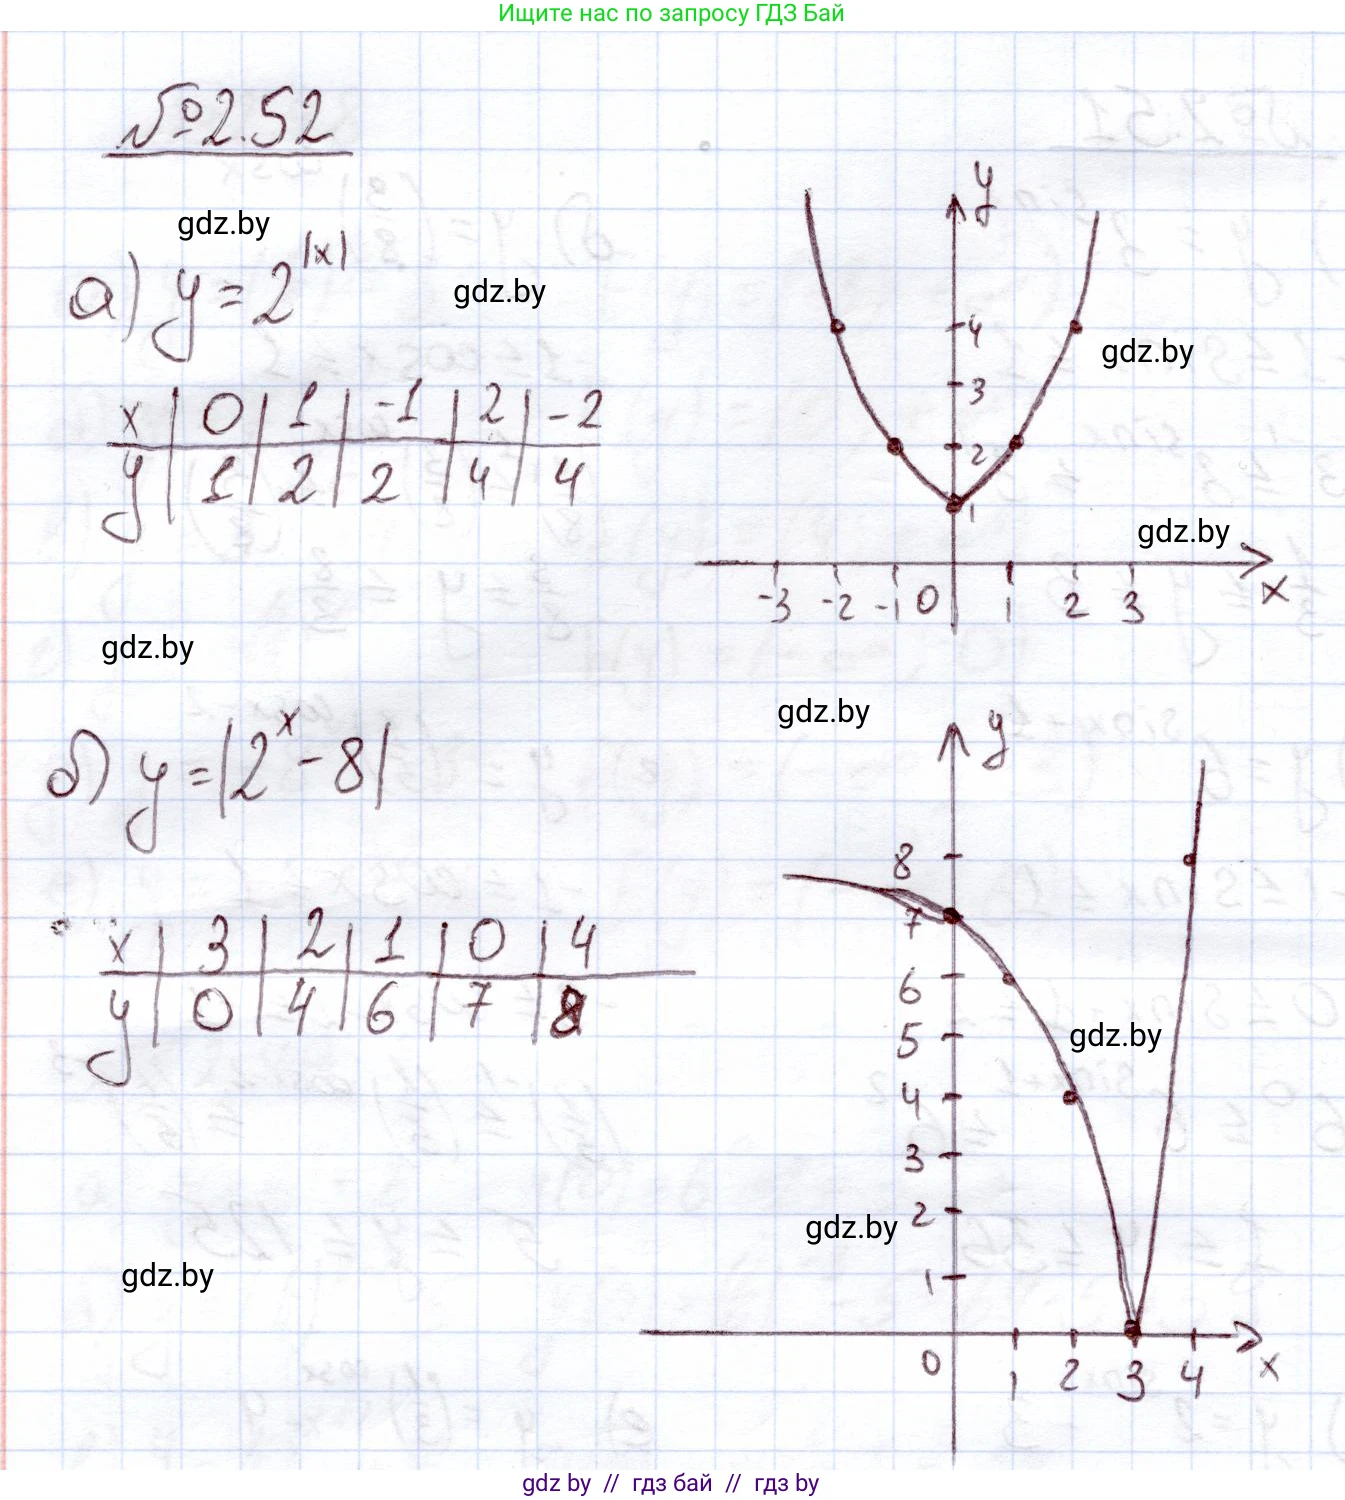 Ищите нас по запросу ГДЗ Бай
№2.52
gdz.by
а) y = 2^|x|
gdz.by
x | 0 | 1 | -1 | 2 | -2
y | 1 | 2 | 2 | 4 | 4
y
4
gdz.by
3
2
1
gdz.by
-3 -2 -1 0 1 2 3 x
gdz.by
gdz.by
б) y = |2^x - 8|
x | 3 | 2 | 1 | 0 | 4
y | 0 | 4 | 6 | 7 | 8
y
8
7
6
5
gdz.by
4
3
2
gdz.by
1
gdz.by
0 1 2 3 4 x
gdz.by // гдз бай // гдз by